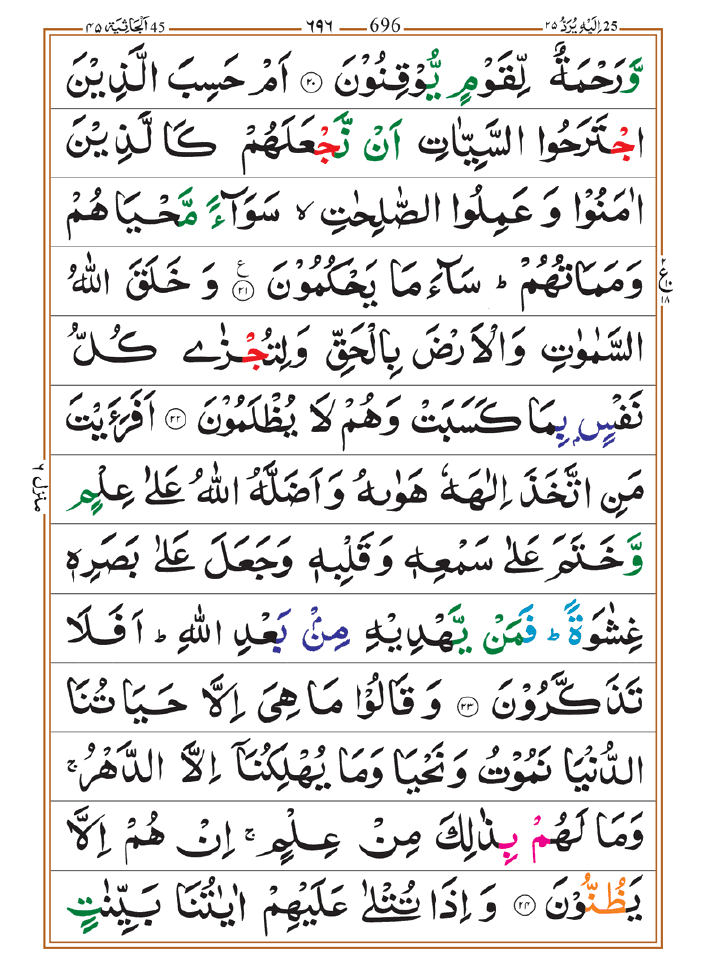 اَلْجَاثِيَة ٤٥ 45 — ٦٩٦ — 696 — اِلَيْهِ يُرَدُّ ٢٥ 25
وَّرَحْمَةٌ لِّقَوْمٍ يُّوْقِنُوْنَ ۟﴿۲۰﴾ اَمْ حَسِبَ الَّذِيْنَ
اجْتَرَحُوا السَّيِّاٰتِ اَنْ نَّجْعَلَهُمْ كَالَّذِيْنَ
اٰمَنُوْا وَ عَمِلُوا الصّٰلِحٰتِ ۙ سَوَآءً مَّحْيَاهُمْ
وَمَمَاتُهُمْ ؕ سَآءَ مَا يَحْكُمُوْنَ ﴿۲۱﴾ ع وَ خَلَقَ اللّٰهُ
٢ ع ١٨
السَّمٰوٰتِ وَالْاَرْضَ بِالْحَقِّ وَلِتُجْزٰى كُلُّ
نَفْسٍۭ بِمَا كَسَبَتْ وَهُمْ لَا يُظْلَمُوْنَ ﴿۲۲﴾ اَفَرَءَيْتَ
مَنِ اتَّخَذَ اِلٰهَهٗ هَوٰىهُ وَاَضَلَّهُ اللّٰهُ عَلٰى عِلْمٍ
منزل ٦
وَّخَتَمَ عَلٰى سَمْعِهٖ وَقَلْبِهٖ وَجَعَلَ عَلٰى بَصَرِهٖ
غِشٰوَةً ؕ فَمَنْ يَّهْدِيْهِ مِنْۢ بَعْدِ اللّٰهِ ؕ اَفَلَا
تَذَكَّرُوْنَ ﴿۲۳﴾ وَقَالُوْا مَا هِىَ اِلَّا حَيَاتُنَا
الدُّنْيَا نَمُوْتُ وَنَحْيَا وَمَا يُهْلِكُنَاۤ اِلَّا الدَّهْرُ ۚ
وَمَا لَهُمْ بِذٰلِكَ مِنْ عِلْمٍ ۚ اِنْ هُمْ اِلَّا
يَظُنُّوْنَ ﴿۲۴﴾ وَاِذَا تُتْلٰى عَلَيْهِمْ اٰيٰتُنَا بَيِّنٰتٍ